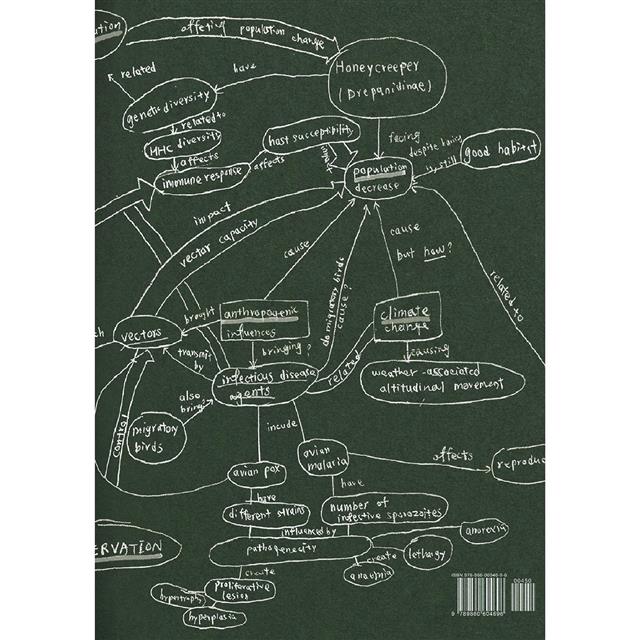 ution
affeting population change
Honeycreeper
(Drepanidinae)
related
have
genetic diversity
related to
MHC diversity
affects
immune response
affects
host susceptibility
facing
despite having
still
good habitat
population
decrease
impact
vector capacity
cause
do migratory birds
cause?
cause
but how?
related to
brought
anthropogenic
influences
climate
change
ch
vectors
transmit
by
bringing?
related
causing
weather-associated
altitudinal movement
infectious disease
agents
also
bring?
migratory
birds
control
incude
avian pox
avian
malaria
affects
reproduc
have
have
different strains
number of
infective sporozoites
influenced by
pathogenecity
create
anorexia
lethargy
anaemia
ERVATION
create
proliferative
lesion
hypertrophy
hyperplasia
00450